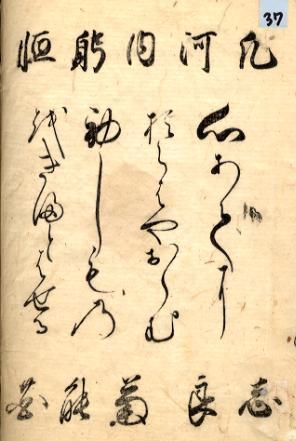 37
凡河内躬恒
心あてに
おらはやおらむ
初しもの
をきまとはせる
志良菊能花